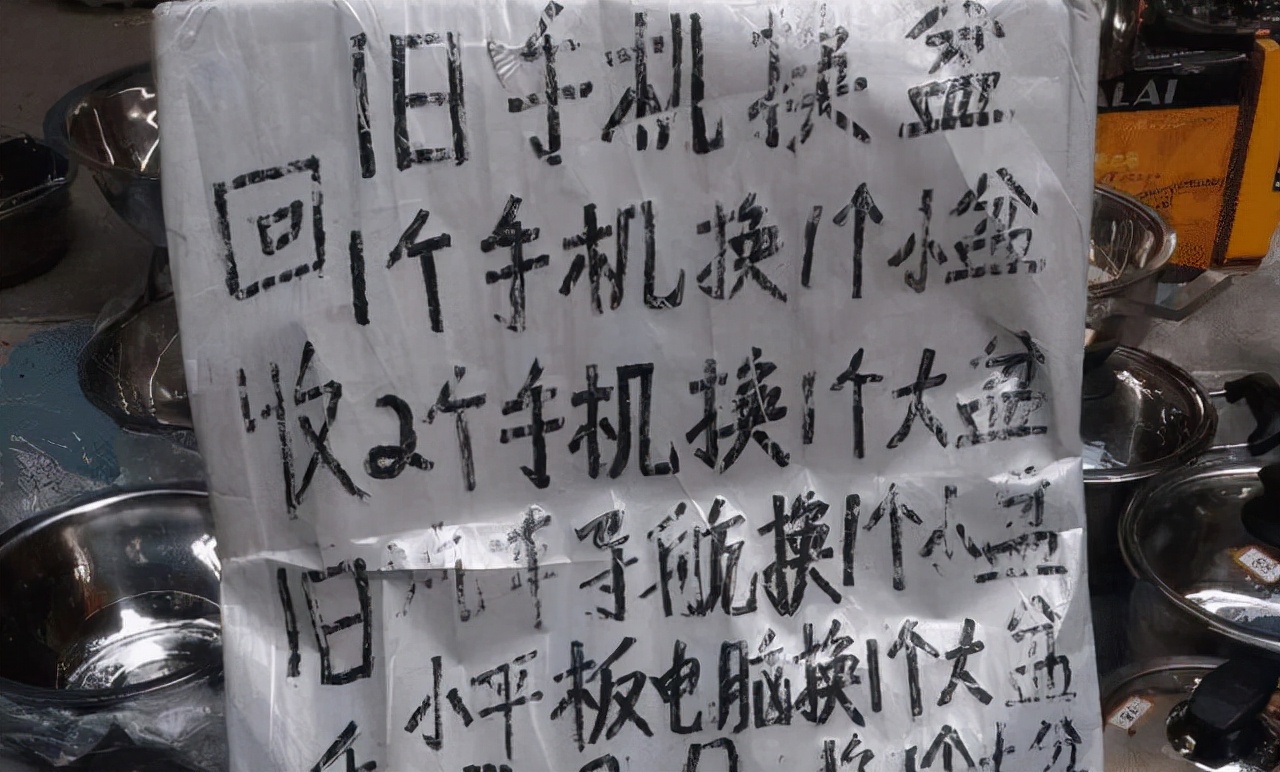 旧手机换盆
回收旧
1个手机换1个小盆
2个手机换1个大盆
导航换1个小盆
小平板电脑换1个大盆
ALAI